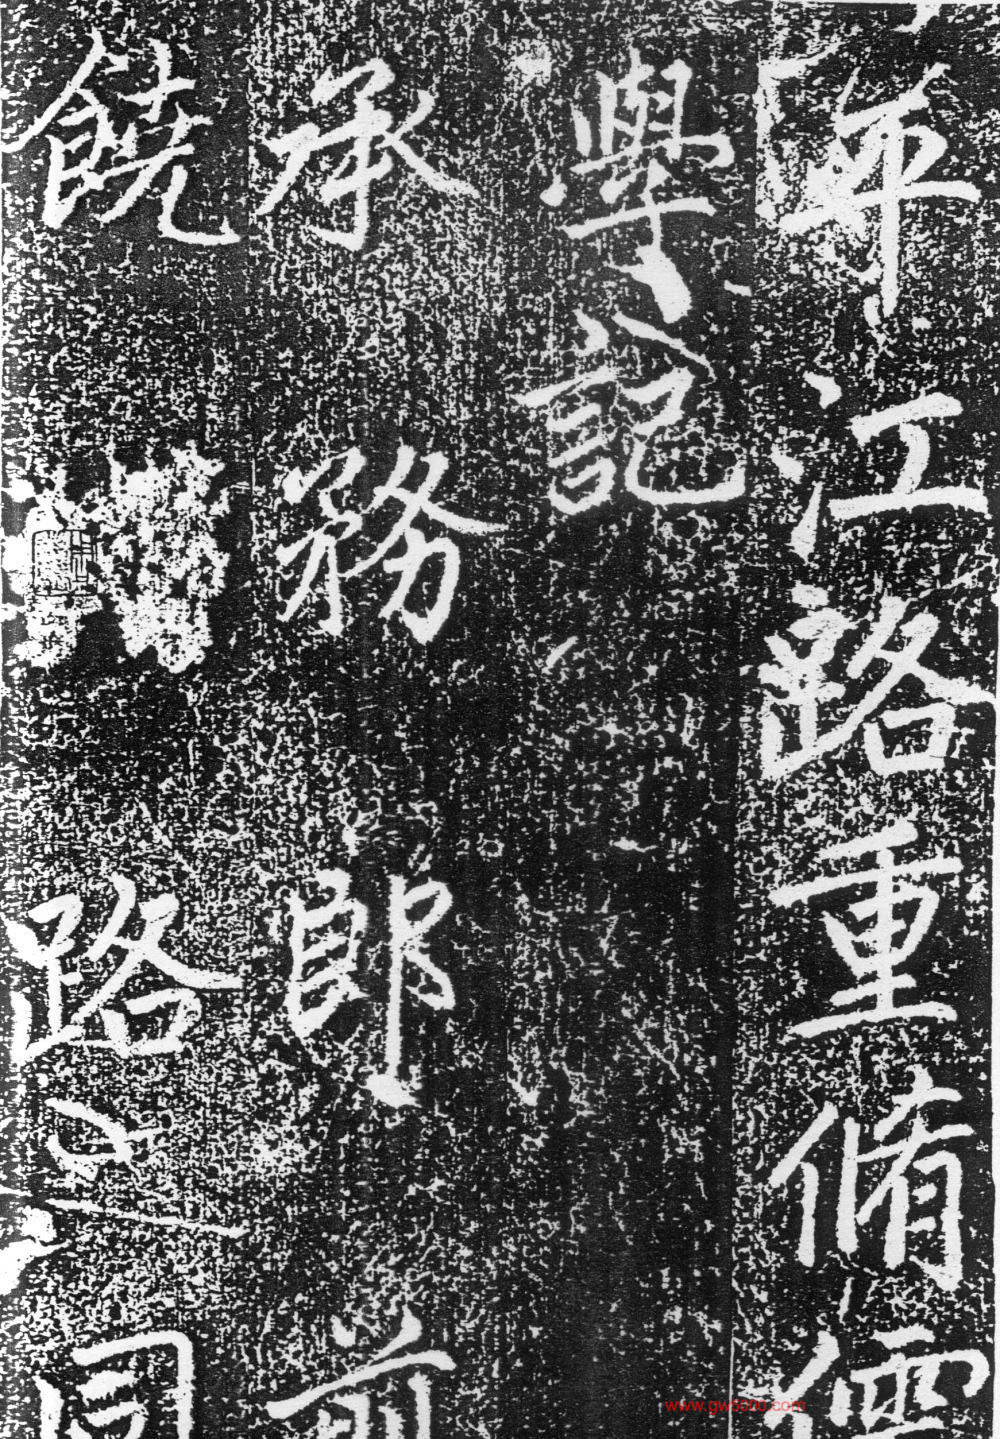 平江路重脩儒
學記
承務郎前
饒路之同
www.gw5000.com